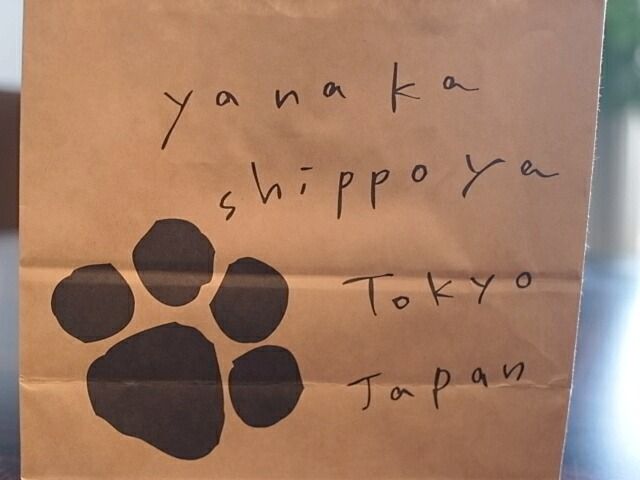 yanaka
shippoya
Tokyo
Japan